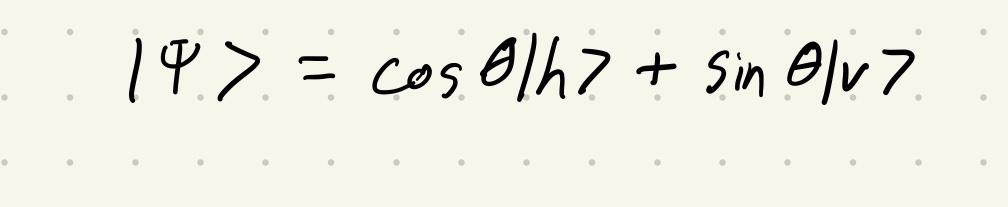 |Ψ> = cos θ|h> + sin θ|v>